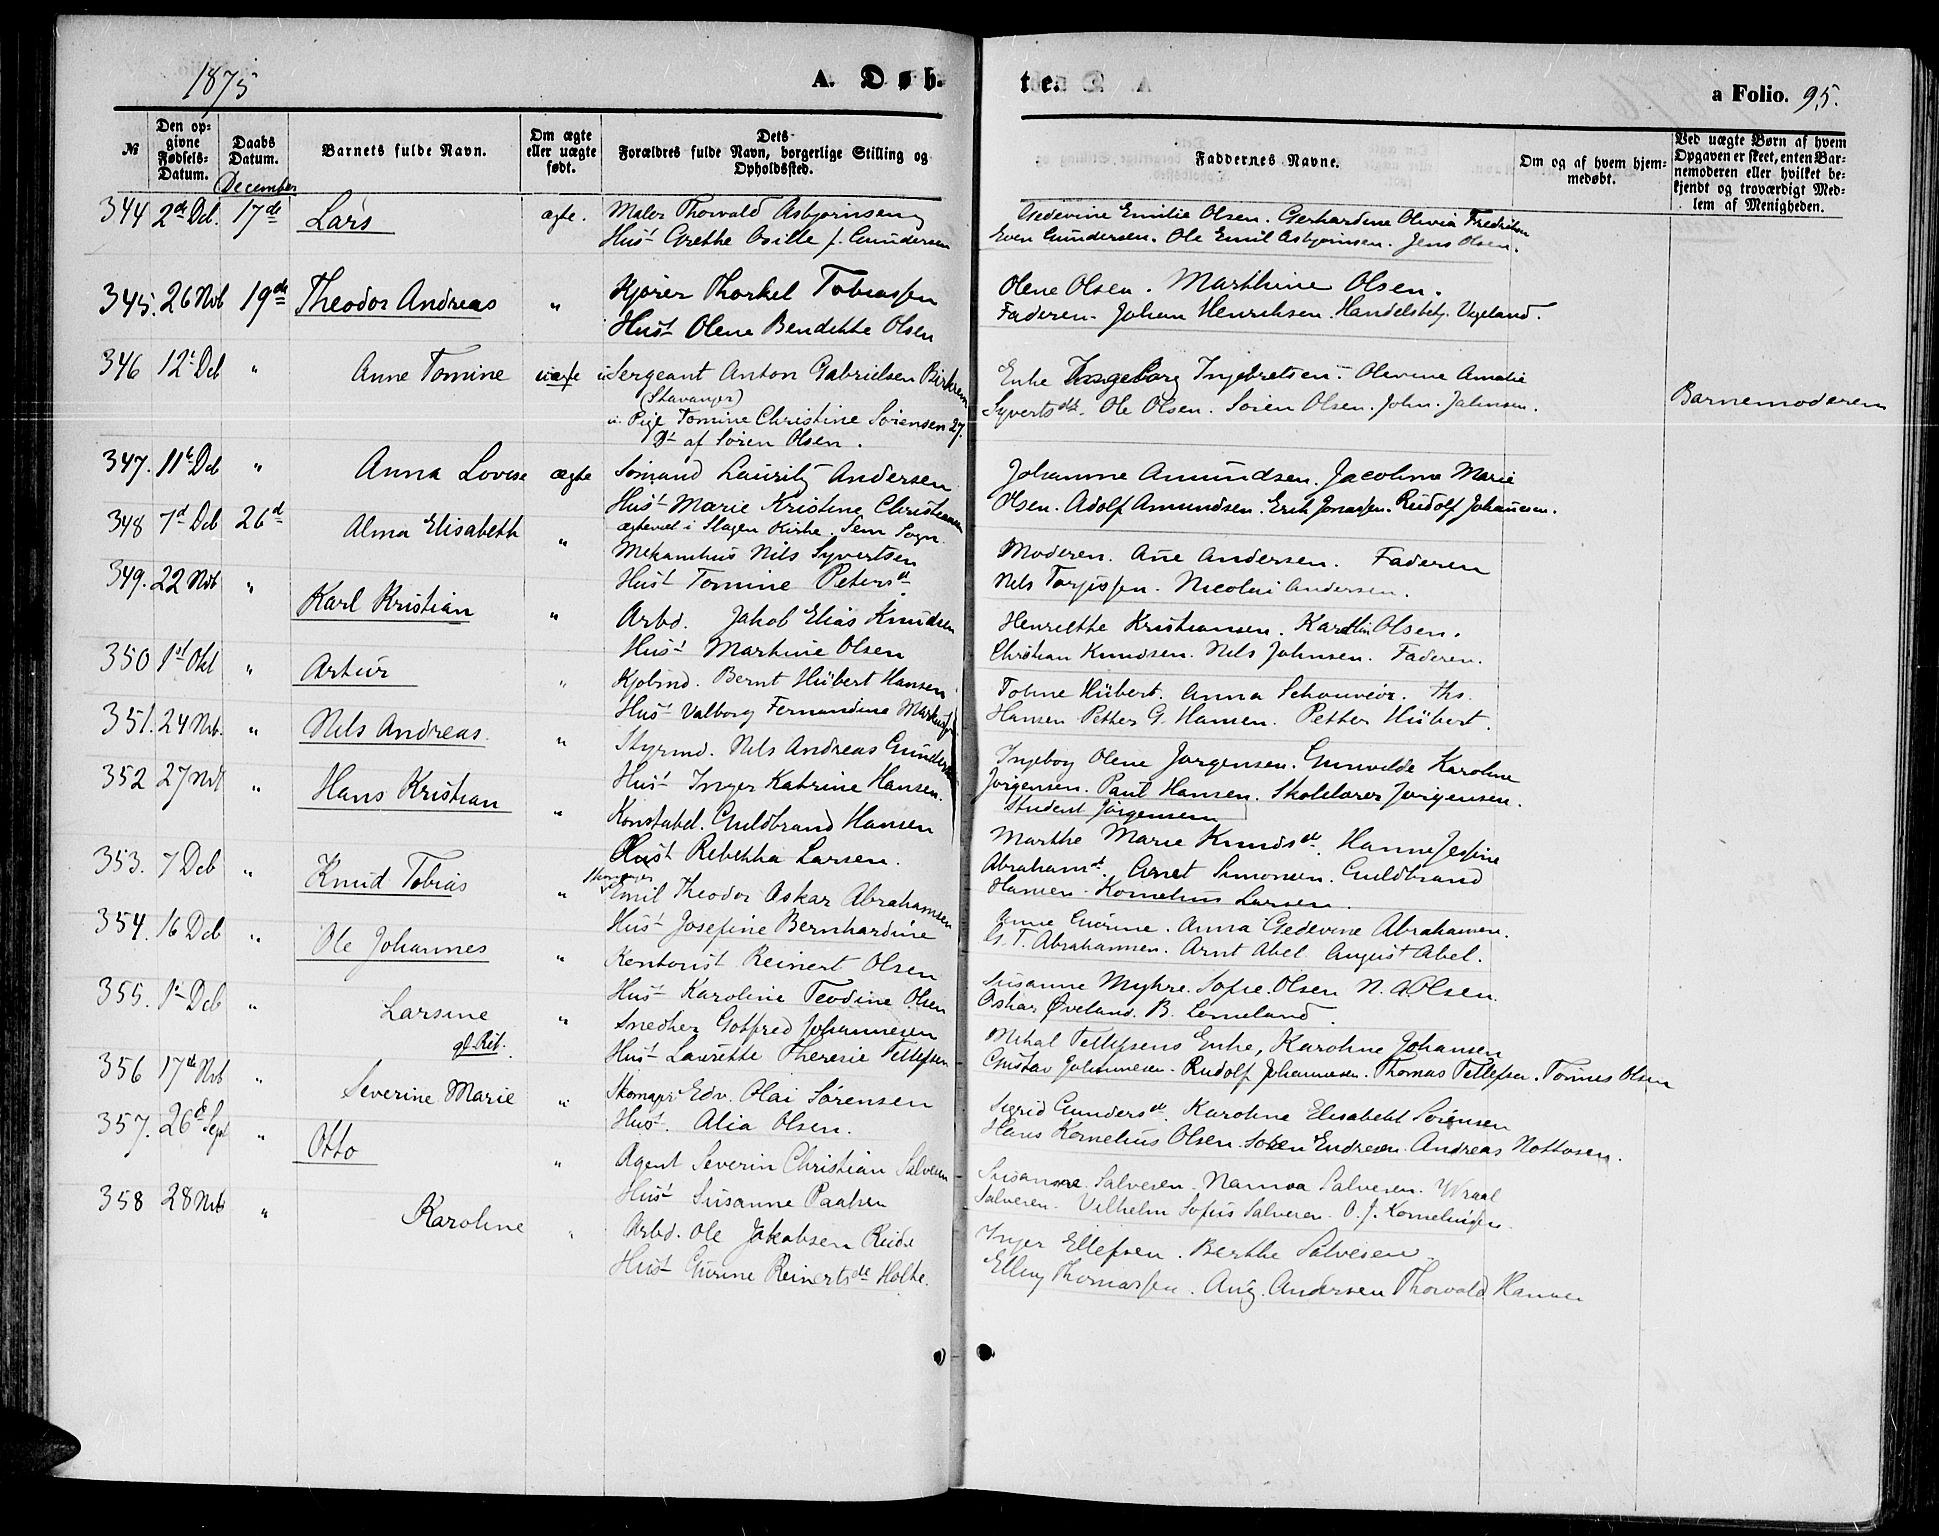 1875
A. Døb-
te.
a Folio. 95.
№
Den opgivne Fødsels-Datum.
Daabs Datum.
Barnets fulde Navn.
Om ægte eller uægte født.
Dets Forældres fulde Navn, borgerlige Stilling og Opholdssted.
Faddernes Navne.
Om og af hvem hjemmedøbt.
Ved uægte Børn af hvem Opgaven er skeet, enten Barnemoderen eller hvilket bekjendt og troværdigt Medlem af Menigheden.
December
344 2de Deb. 17de Lars ægte. Maler Thorvald Asbjørnsen
Hust Grethe f. Gundersen
Gedevine Emilie Olsen. Gerhardine Olivia Fredriksen
Even Gundersen. Ole Emil Asbjørnsen. Jens Olsen.
345. 26 Nvb 19de Theodor Andreas " Kjører Thorkel Tobiassen
Hust Olene Bendikte Olsen
Olene Olsen. Marthine Olsen.
Faderen. Johan Henriksen. Handelsbetj. Vegeland.
346 12t Deb " Anne Tomine uægte Sergeant Anton Gabrielsen Birkrem
(Stavanger)
u. Pige Tomine Christine Sørensen 27.
Dt af Søren Olsen.
Enke Ingeborg Ingebretsen. Olevine Amalie
Syvertsdt. Ole Olsen. Soren Olsen. John Jahnsen.
Barnemoderen
347. 11t Deb " Anna Lovise ægte Sømand Lauritz Andersen
Hust Marie Kristine Christiansen
ægteviet i Slagen Kirke. Sem Sogn.
Johanne Amundsen. Jacobine Marie
Olsen. Adolf Amundsen. Erik Jonassen. Rudolf Johannesen.
348 7d Deb 26d Alma Elisabeth " Mekanikus Nils Syvertsen
Hust Tomine Petersdt
Moderen. Ane Andersen. Faderen
Nels Torjussen. Nicolai Andersen.
349. 22 Nvb " Karl Kristian " Arbd. Jakob Elias Knudsen
Hust Martine Olsen
Henriethe Kristiansen. Olsen.
Christian Knudsen. Nels Johnsen. Faderen.
350 1st Okt " Artur " Kjøbmd. Bernt Hübert Hansen
Hust Valborg Fernandine
Tobine Hübert. Anna Ths.
Hansen Petter G. Hansen. Petter Hübert.
351. 24 Nvb. " Nels Andreas. " Styrmd. Nels Andreas Gundersen
Hust Inger Katrine Hansen.
Ingeborg Olene Jørgensen. Gunvelde Karoline
Jørgensen. Paul Hansen. Skolelærer Jørgensen.
Student Jørgensen
352 27 Nvb " Hans Kristian " Konstabel. Guldbrand Hansen
Hust Rebekka Larsen.
Marthe Marie Knudsdt. Hanne Jesfine
Abrahamst. Simonsen. Guldbrand
Hansen. Kornelius Larsen.
353. 7 Deb " Knud Tobias " Emil Theodor Oskar Abrahamsen
Hust Josefine Bernhardine
Anne Gurine. Anna Gedevine Abrahamsen.
G. T. Abrahamsen. Arnt Abel August Abel.
354. 16 Deb " Ole Johannes " Kontorist Reinert Olsen
Hust Karoline Teodine Olsen
Susanne Myhre. Sofie Olsen N. A. Olsen.
Oskar Øveland. B. Lomeland.
355. 1st Deb " Larsine " Snedker Gotfred Johannesen
Hust Laurette Theresie Tellefsen
Mikal Tellefsens Enke, Karoline Johansen
Gustav Johannesen. Rudolf Johannesen. Thomas Tellefsen. Tønnes Olsen
356 17de Nvb " Severine Marie " Skomagr Edv. Olai Sørensen
Hust. Alia Olsen.
Sigrid Gundersdt. Karoline Elisabeht Sorensen
Hans Kornelius Olsen. Soren Endresen. Andreas
357. 26d Sept " Otto " Agent Severin Christian Salvesen
Hust Susanne Paalsen
Susanne Salvesen. Salvesen. Wraal
Salvesen. Vilhelm Sofus Salvesen. O. J. Korneliussen
358 28 Nvb " Karoline " Arbd. Ole Jakobsen
Hust Gurine Reinertsdt Holte.
Inger Ellefsen. Berthe Salvesen
Thomassen. Aug. Andersen Thorvald Hansen